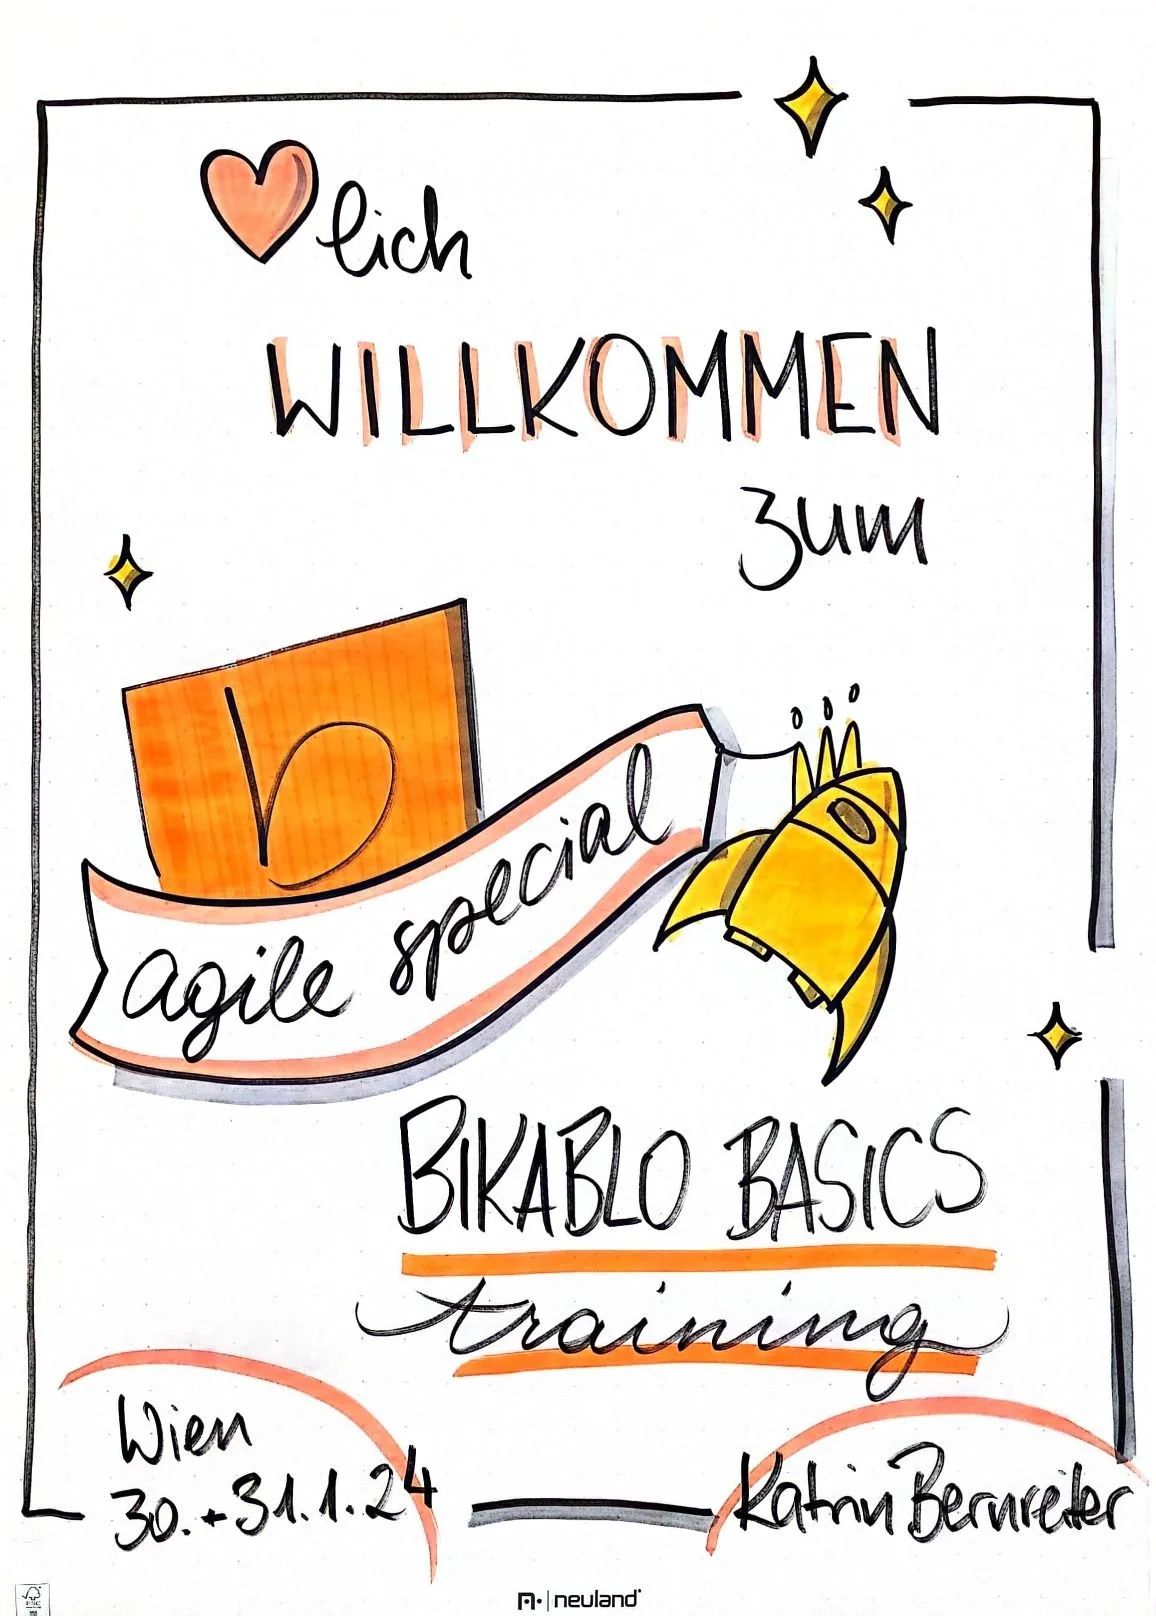 lich
WILLKOMMEN
zum
b
agile special
BIKABLO BASICS
training
Wien
30.+31.1.24
Katrin Bernreiter
neuland
FSC